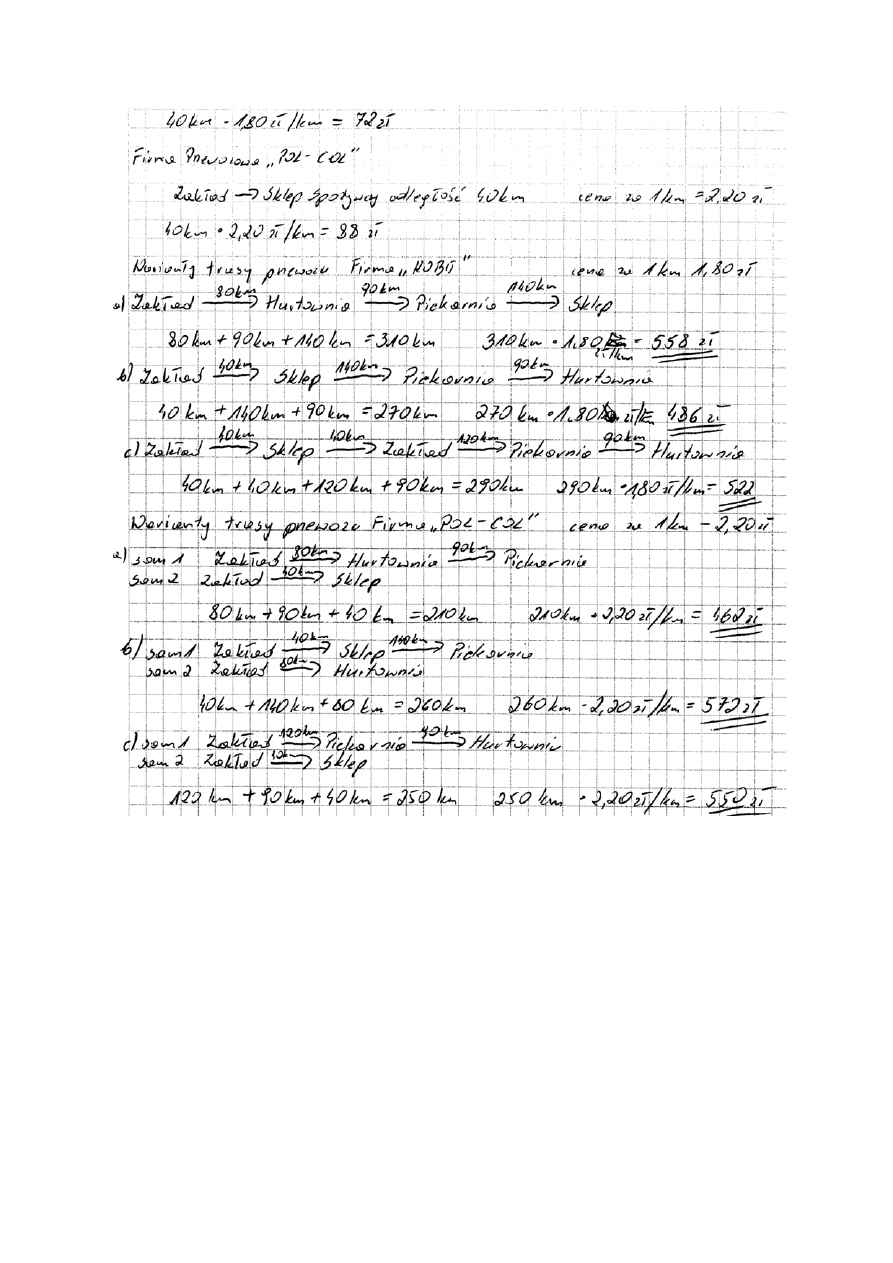 40km · 1,80 zł/km = 72 zł
Firma Przewozowa „POL-COL"
Zakład → Sklep Spożywczy odległość 40km cena za 1km = 2,20 zł
40km · 2,20 zł/km = 88 zł
Warianty trasy przewozu Firma „KUBUŚ" cena za 1km 1,80 zł
80km 90km 140km
a) Zakład → Hurtownia → Piekarnia → Sklep
80km + 90km + 140km = 310km 310km · 1,80 zł/km = 558 zł
40km 140km 90km
b) Zakład → Sklep → Piekarnia → Hurtownia
40km + 140km + 90km = 270km 270km · 1,80 zł/km 486 zł
40km 40km 120km 90km
c) Zakład → Sklep → Zakład → Piekarnia → Hurtownia
40km + 40km + 120km + 90km = 290km 290km · 1,80 zł/km = 522
Warianty trasy przewozu Firma „POL-COL" cena za 1km - 2,20 zł
80km 90km
a) sam 1 Zakład → Hurtownia → Piekarnia
40km
sam 2 Zakład → Sklep
80km + 90km + 40km = 210km 210km · 2,20 zł/km = 462 zł
40km 140km
b) sam 1 Zakład → Sklep → Piekarnia
80km
sam 2 Zakład → Hurtownia
40km + 140km + 80km = 260km 260km · 2,20 zł/km = 572 zł
120km 90km
c) sam 1 Zakład → Piekarnia → Hurtownia
40km
sam 2 Zakład → Sklep
120km + 90km + 40km = 250km 250km · 2,20 zł/km = 550 zł